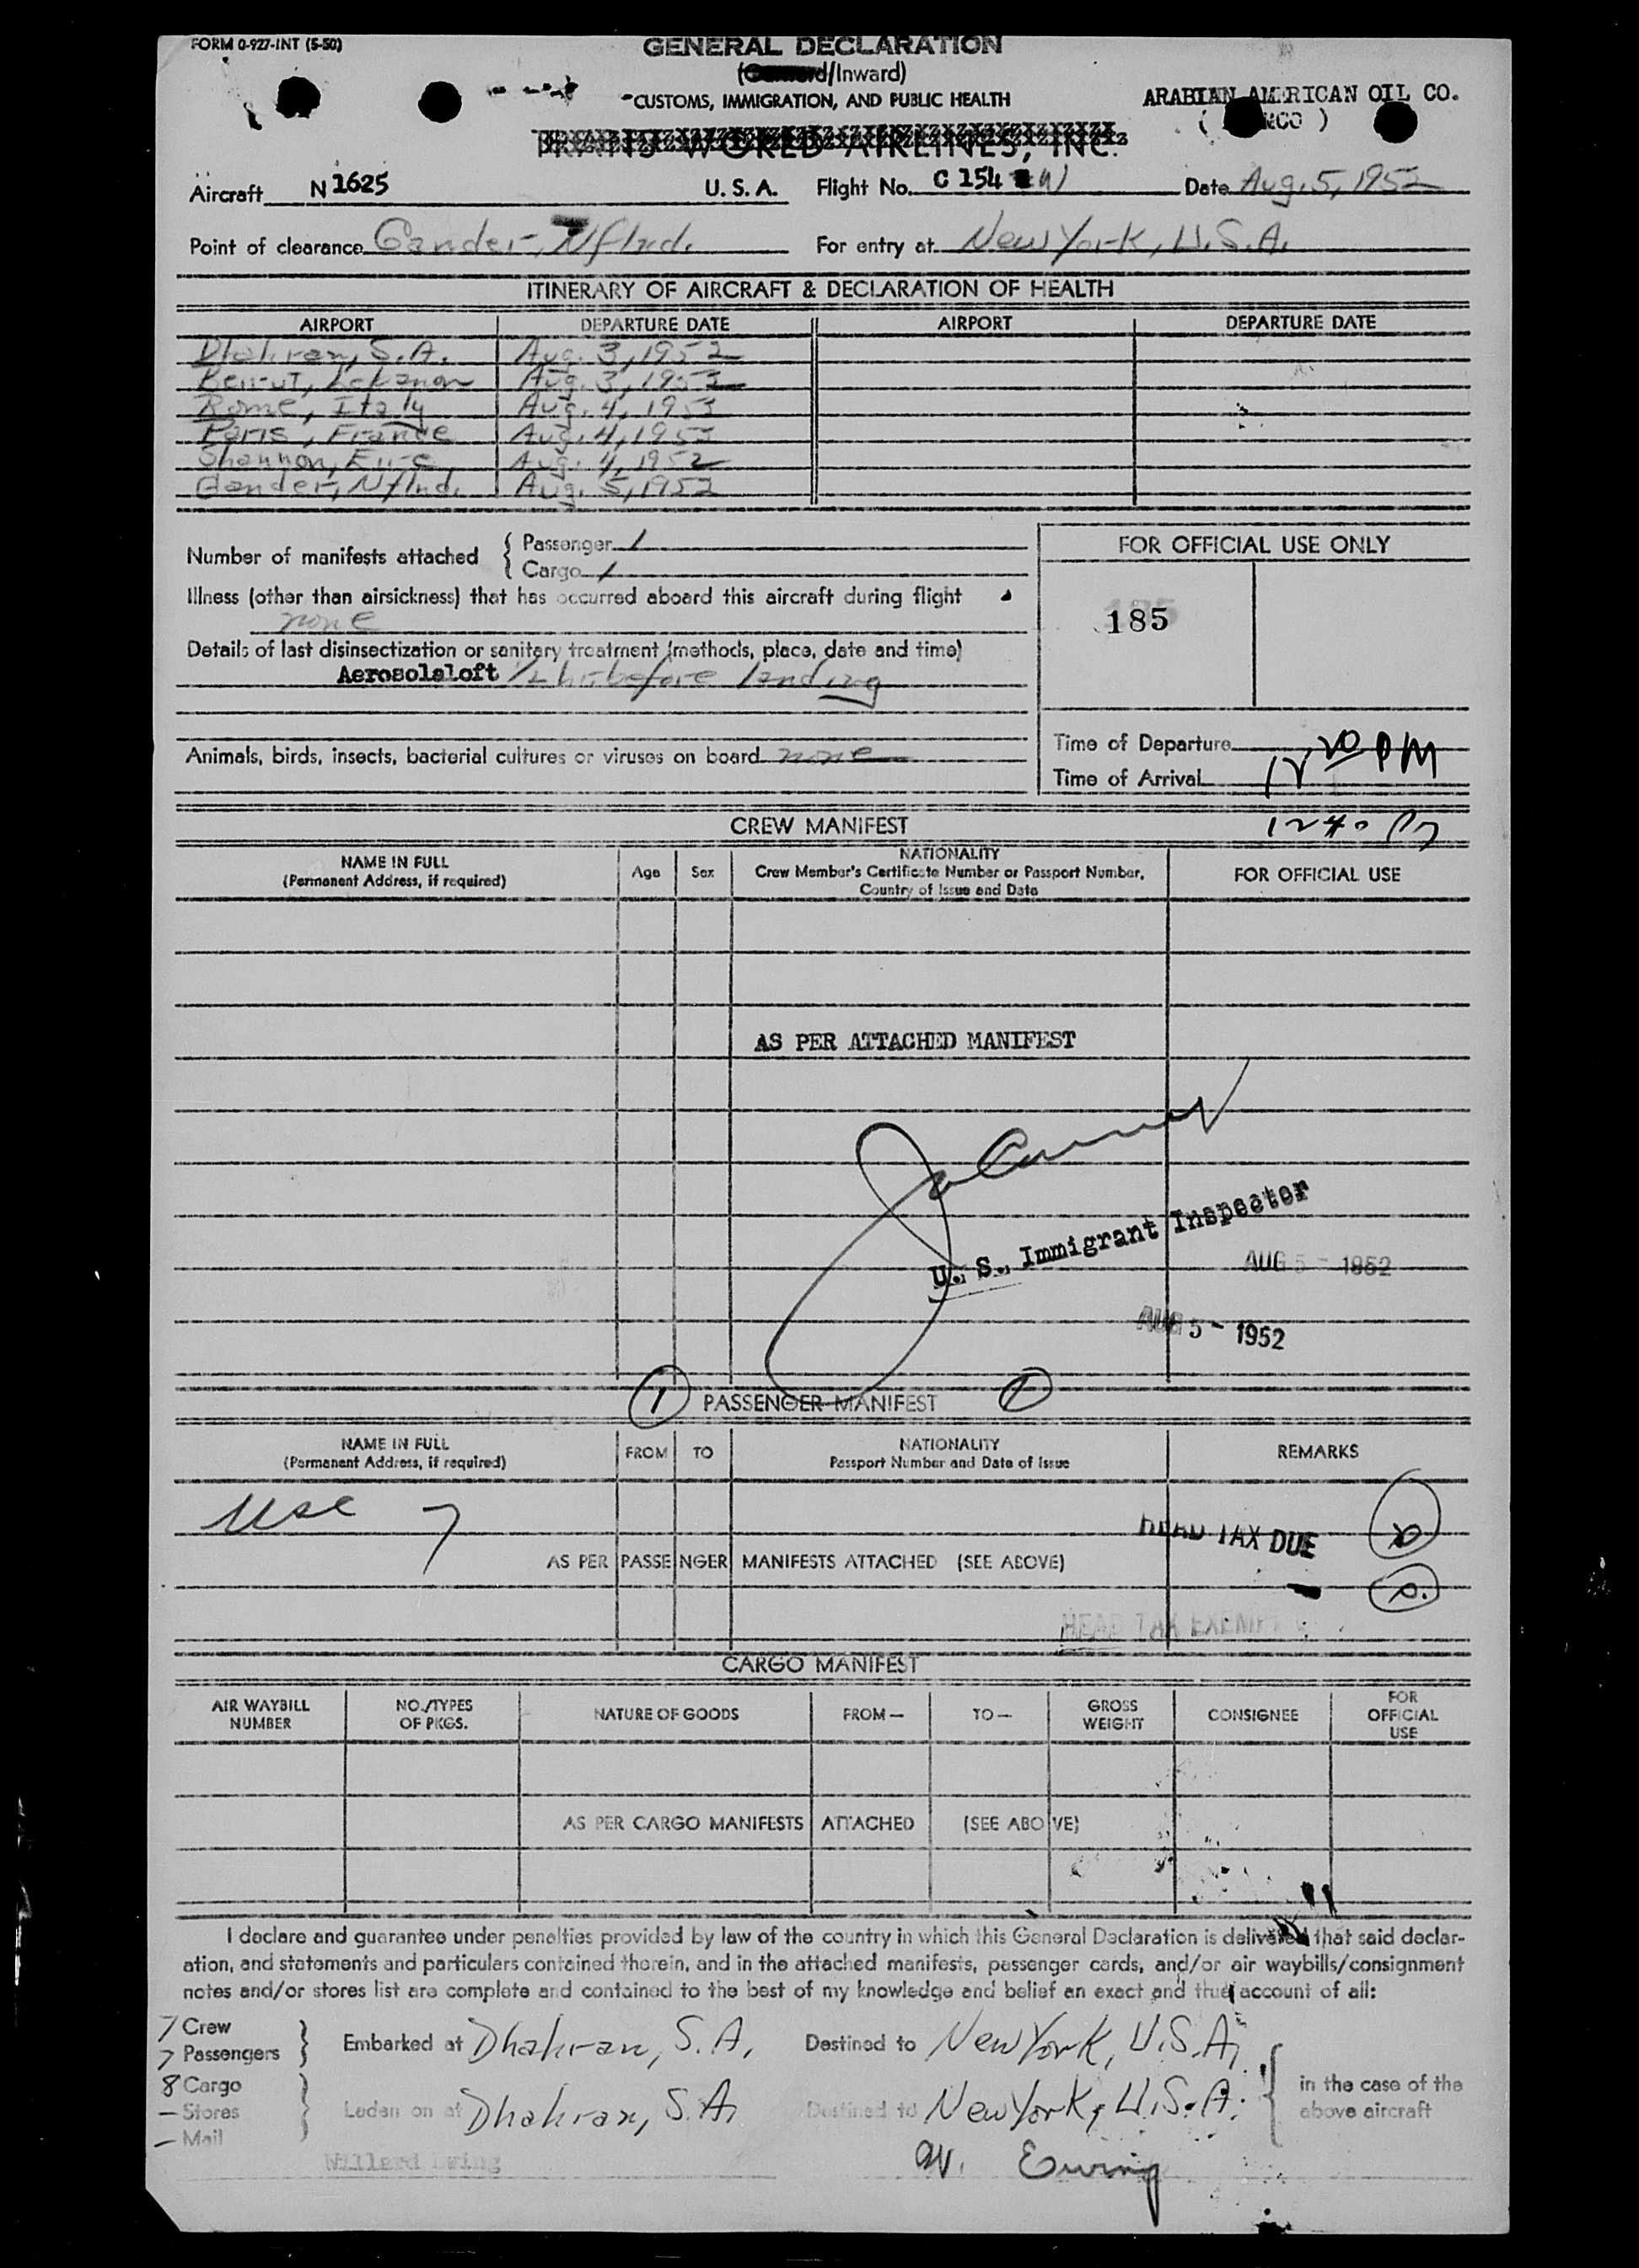 FORM 0-927-INT (5-50)
GENERAL DECLARATION
(Outward/Inward)
CUSTOMS, IMMIGRATION, AND PUBLIC HEALTH
ARABIAN AMERICAN OIL CO.
TRANS WORLD AIRLINES, INC.
Aircraft N 1625 U. S. A. Flight No. C 154 W Date Aug. 5, 1952
Point of clearance Gander, Nflnd. For entry at New York, U.S.A.
ITINERARY OF AIRCRAFT & DECLARATION OF HEALTH
AIRPORT DEPARTURE DATE AIRPORT DEPARTURE DATE
Dhahran, S.A. Aug. 3, 1952
Beirut, Lebanon Aug. 3, 1952
Rome, Italy Aug. 4, 1952
Paris, France Aug. 4, 1952
Shannon, Eire Aug. 4, 1952
Gander, Nflnd. Aug. 5, 1952
Number of manifests attached { Passenger 1
Cargo 1
FOR OFFICIAL USE ONLY
185
Illness (other than airsickness) that has occurred aboard this aircraft during flight
none
Details of last disinsectization or sanitary treatment (methods, place, date and time)
Aerosolaloft 1/2 hr. before landing
Animals, birds, insects, bacterial cultures or viruses on board none
Time of Departure
Time of Arrival 12 20 PM
CREW MANIFEST
1240
NAME IN FULL
(Permanent Address, if required)
Age Sex
NATIONALITY
Crew Member's Certificate Number or Passport Number,
Country of Issue and Date
FOR OFFICIAL USE
AS PER ATTACHED MANIFEST
U. S. Immigrant Inspector
AUG 5 - 1952
AUG 5 - 1952
1 PASSENGER MANIFEST
NAME IN FULL
(Permanent Address, if required)
FROM TO
NATIONALITY
Passport Number and Date of Issue
REMARKS
USC 7
HEAD TAX DUE
AS PER PASSENGER MANIFESTS ATTACHED (SEE ABOVE)
HEAD TAX EXEMPT
CARGO MANIFEST
AIR WAYBILL NUMBER
NO./TYPES OF PKGS.
NATURE OF GOODS
FROM —
TO —
GROSS WEIGHT
CONSIGNEE
FOR OFFICIAL USE
AS PER CARGO MANIFESTS ATTACHED (SEE ABOVE)
I declare and guarantee under penalties provided by law of the country in which this General Declaration is delivered that said declar-
ation, and statements and particulars contained therein, and in the attached manifests, passenger cards, and/or air waybills/consignment
notes and/or stores list are complete and contained to the best of my knowledge and belief an exact and true account of all:
7 Crew
7 Passengers } Embarked at Dhahran, S.A. Destined to New York, U.S.A.
8 Cargo
— Stores } Laden on at Dhahran, S.A. Destined to New York, U.S.A.
— Mail
in the case of the
above aircraft
Willard Ewing
W. Ewing